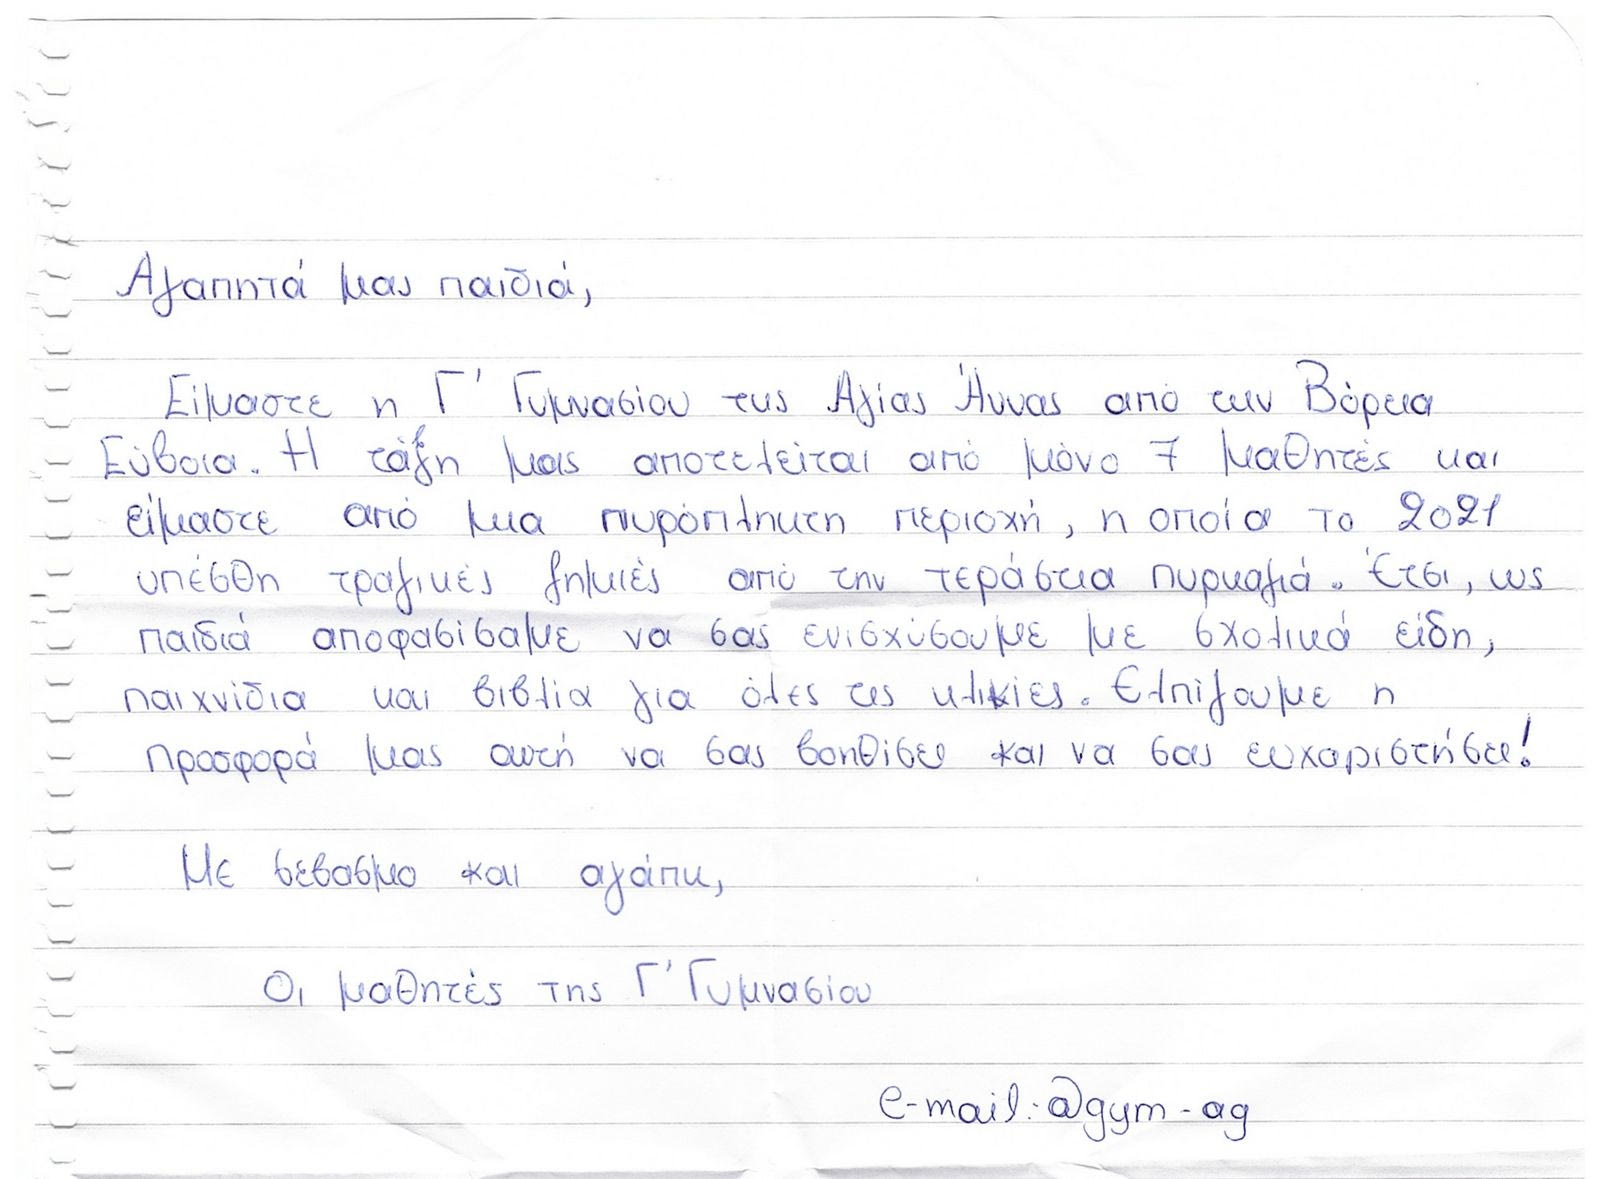 Αγαπητά μας παιδιά,
Είμαστε η Γ' Γυμνασίου της Αγίας Άννας από την Βόρεια
Εύβοια. Η τάξη μας αποτελείται από μόνο 7 μαθητές και
είμαστε από μια πυρόπληκτη περιοχή, η οποία το 2021
υπέσθη τραγικές ζημιές από την τεράστια πυρκαγιά. Έτσι, ως
παιδιά αποφασίσαμε να σας ενισχύσουμε με σχολικά είδη,
παιχνίδια και βιβλία για όλες τις ηλικίες. Ελπίζουμε η
προσφορά μας αυτή να σας βοηθίσει και να σας ευχαριστήσει!
Με σεβασμο και αγάπη,
Οι μαθητές της Γ' Γυμνασίου
e-mail: @gym-ag